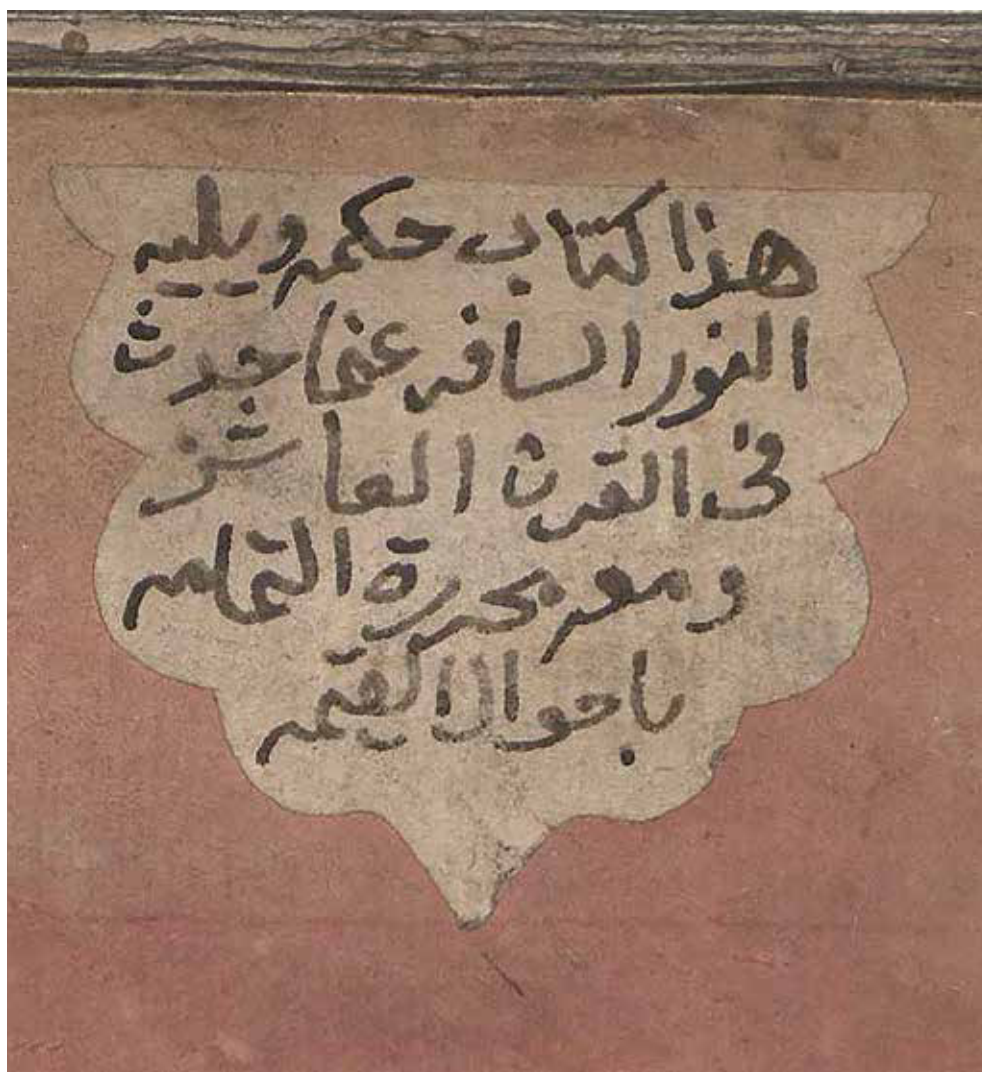 هذا كتاب حكمه ويليه
النور السافر عما حدث
فى القرن العاشر
ومعه محررة التمامه
باحوال القيمه